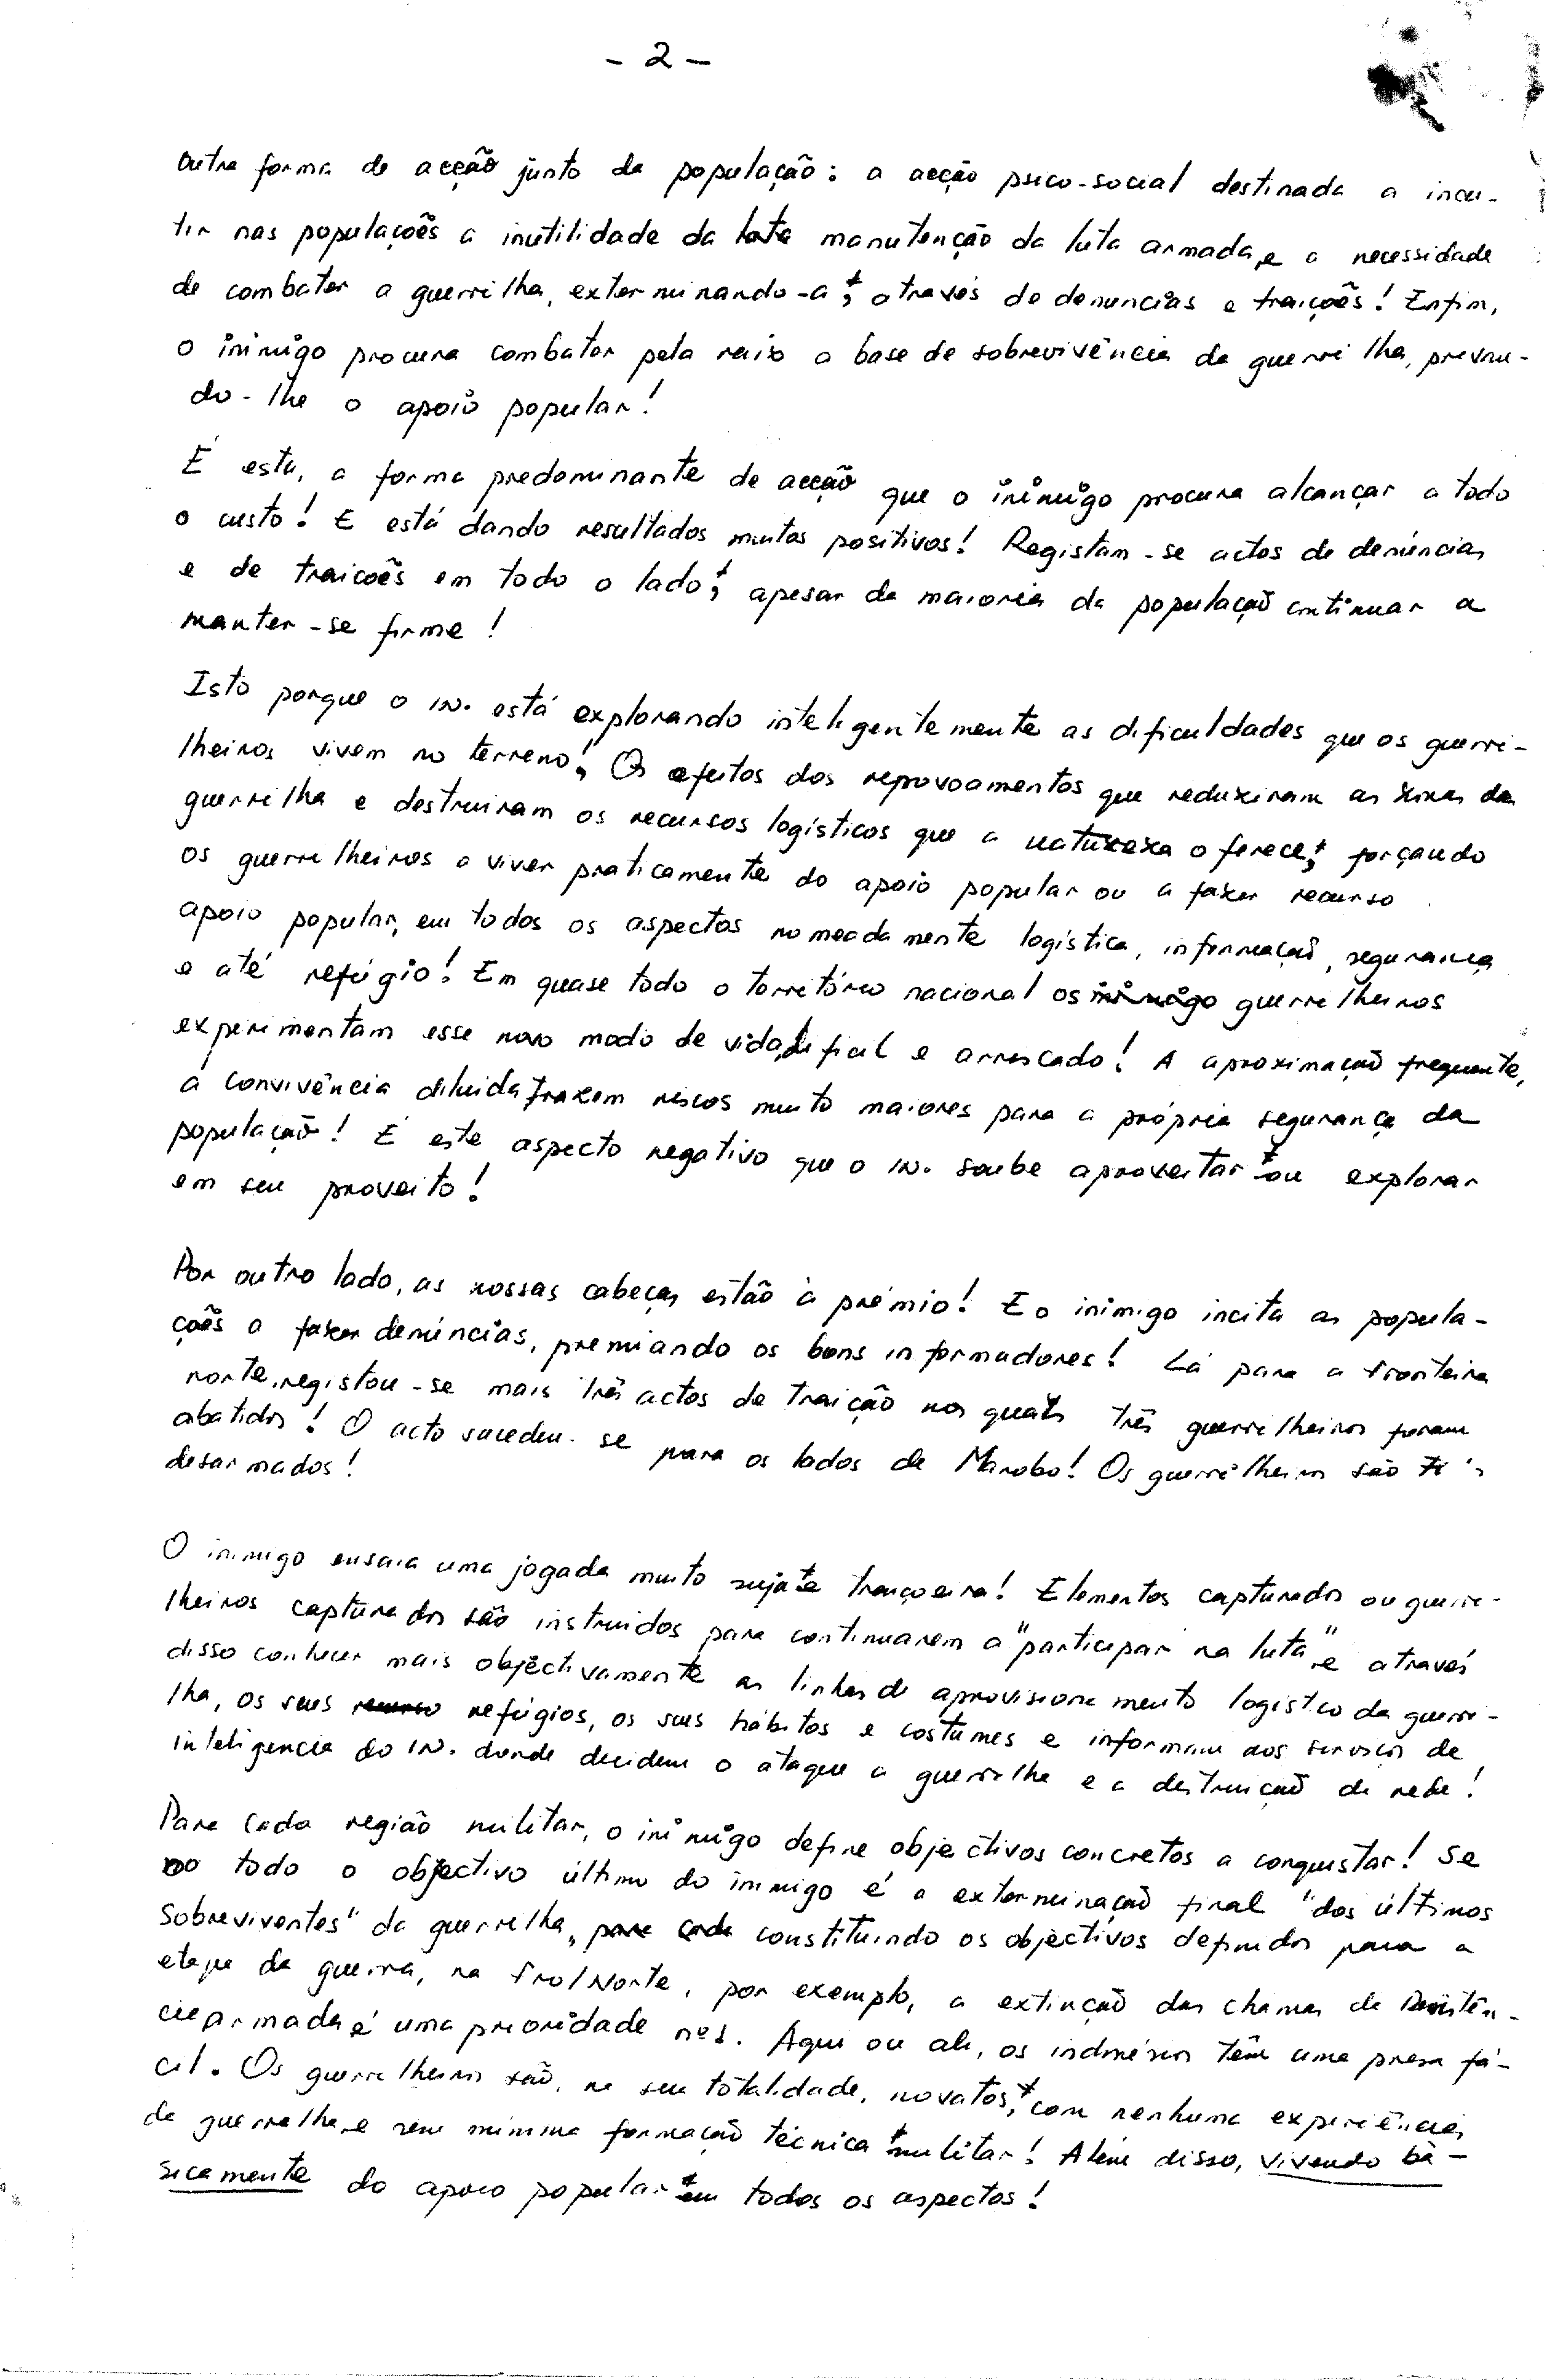 - 2 -
Outra forma de acção junto da população: a acção psico-social destinada a incu-
tir nas populações a inutilidade da manutenção da luta armada, e a necessidade
de combater a guerrilha, exterminando-a, através de denuncias e traições! Enfim,
o inimigo procura combater pela raiz a base de sobrevivência da guerrilha, privan-
do-lhe o apoio popular!
É esta, a forma predominante de acção que o inimigo procura alcançar a todo
o custo! E está dando resultados muitos positivos! Registam-se actos de denúncias
e de traicoẽs em todo o lado, apesar da maioria da população continuar a
manter-se firme!
Isto porque o IN. está explorando inteligentemente as dificuldades que os guerri-
lheiros vivem no terreno! Os efeitos dos repovoamentos que reduziram as zonas da
guerrilha e destruiram os recursos logísticos que a natureza oferece, forçando
os guerrilheiros a viver praticamente do apoio popular ou a fazer recurso
apoio popular, em todos os aspectos nomeadamente logística, informação, segurança
e até refúgio! Em quase todo o território nacional os guerrilheiros
experimentam esse novo modo de vida, difícil e arriscado! A aproximação frequente,
a convivência diluida trazem riscos muito maiores para a própria segurança da
população! É este aspecto negativo que o IN. soube aproveitar ou explorar
em seu proveito!
Por outro lado, as nossas cabeças estão à prémio! E o inimigo incita as popula-
ções a fazer denúncias, premiando os bons informadores! Lá para a fronteira
norte, registou-se mais três actos de traição nos quais três guerrilheiros foram
abatidos! O acto sucedeu-se para os lados de Marobo! Os guerrilheiros são
desarmados!
O inimigo ensaia uma jogada muito suja e traiçoeira! Elementos capturados ou guerri-
lheiros capturados são instruidos para continuarem a "participar na luta", e através
disso conhecer mais objectivamente as linhas de aprovisionamento logístico da guerri-
lha, os seus refúgios, os seus hábitos e costumes e informam aos serviços de
inteligencia do IN. donde decidem o ataque a guerrilha e a destruição da rede!
Para cada região militar, o inimigo define objectivos concretos a conquistar! Se
no todo o objectivo último do inimigo é a exterminação final "dos últimos
sobreviventes" da guerrilha, constituindo os objectivos definidos para a
etapa da guerra, na Fro/Norte, por exemplo, a extinção das chamas da Resistên-
cia armada é uma prioridade nº1. Aqui ou ali, os indonésios têm uma presa fá-
cil. Os guerrilheiros são, na sua totalidade, novatos, com nenhuma experiência
de guerrilha, e sem mínima formação técnica militar! Além disso, vivendo bà-
sicamente do apoio popular em todos os aspectos!